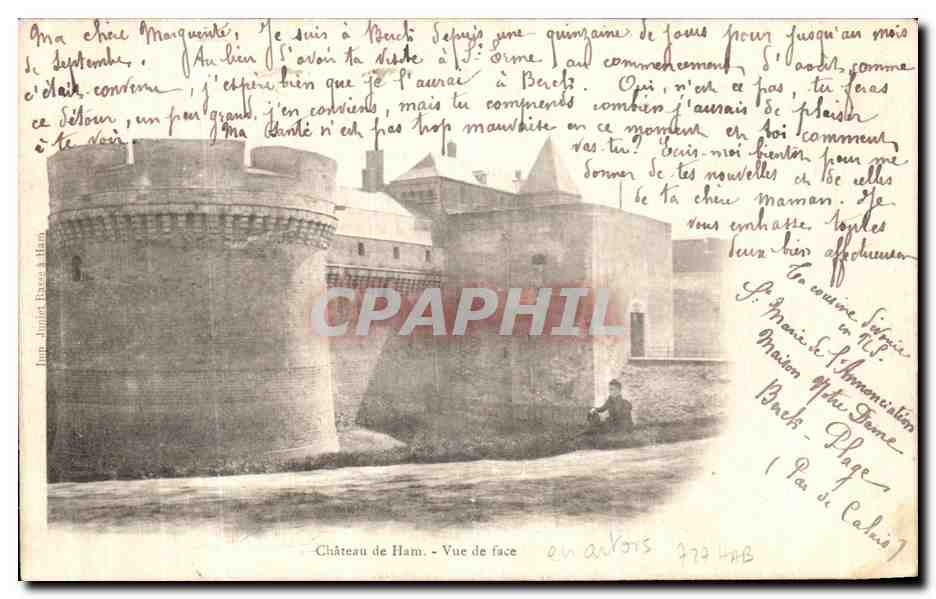 Ma chère Marguerite, Je suis à Berck depuis une quinzaine de jours pour jusqu'au mois
de Septembre. Au lieu d'avoir ta visite à St Orme au commencement d'août comme
c'était convenu, j'espère bien que je l'aurai à Berck. Oui, n'est ce pas, tu feras
ce détour, un peu grand, j'en conviens, mais tu comprends combien j'aurais de plaisir
à te voir. Ma santé n'est pas trop mauvaise en ce moment et toi comment
vas-tu? Ecris-moi bientôt pour me
donner de tes nouvelles et de celles
de ta chère maman. Je
vous embrasse toutes
deux bien affectueusement
Ta cousine dévouée
en N.S.
Sr Marie de l'Annonciation
Maison Notre Dame
Berck-Plage
(Pas de Calais)
Imp. Juniet Rasse à Ham
CPAPHIL
Château de Ham. - Vue de face
en artois 727 HAB